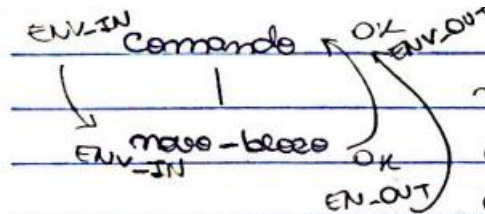 ENV_IN Comando OK ENV_OUT
ENV_IN novo-bloco OK
EN_OUT